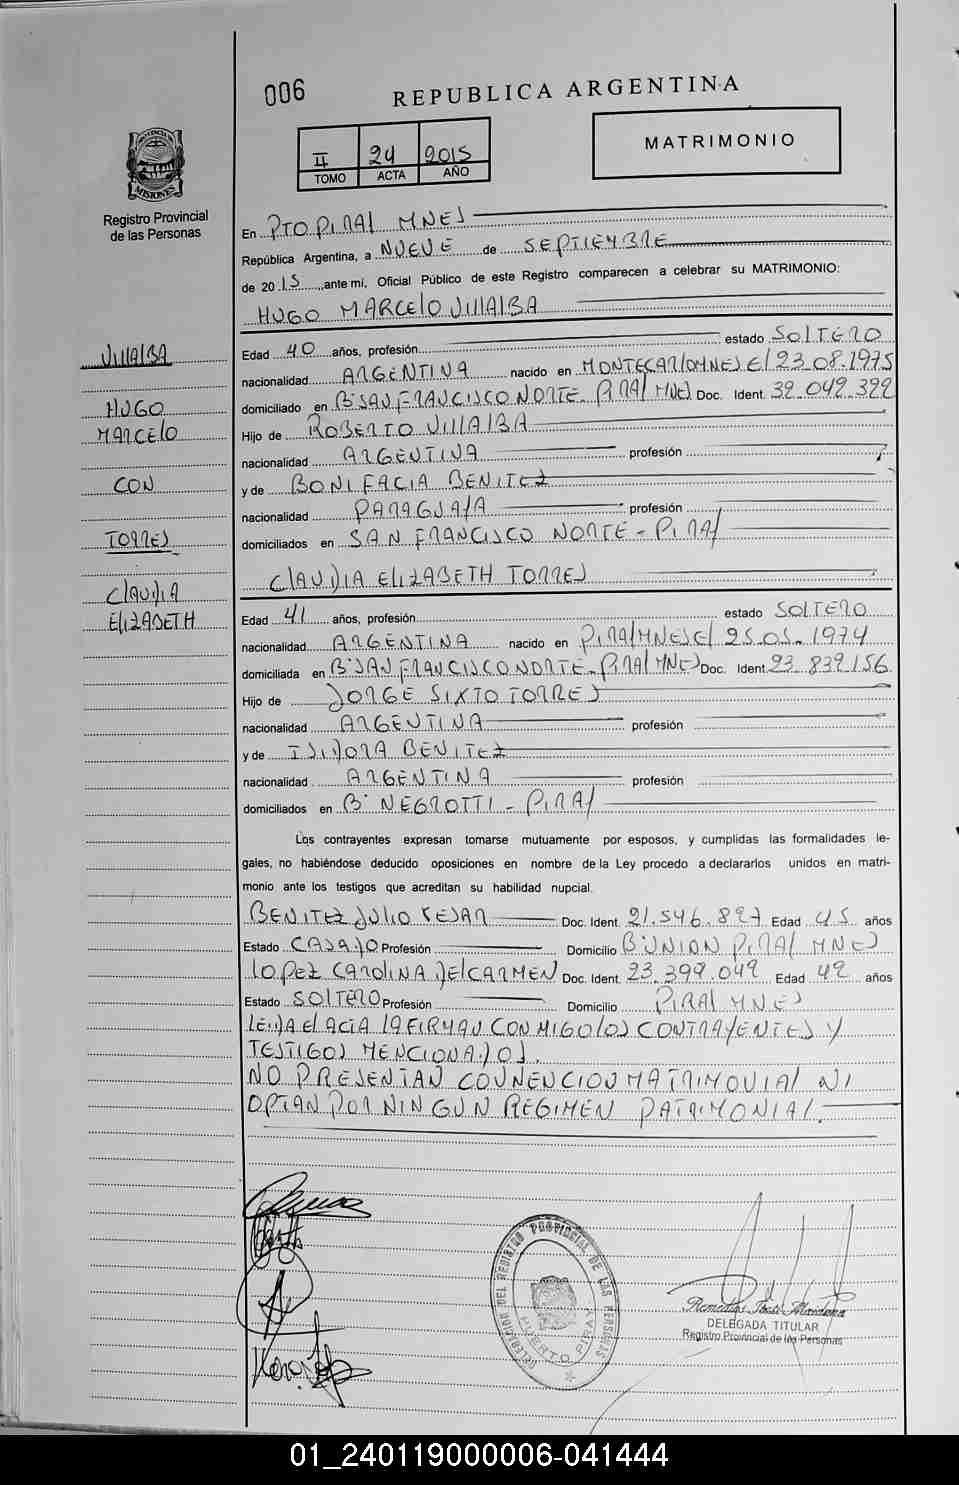 006
REPUBLICA ARGENTINA
II 24 2015
TOMO ACTA AÑO
MATRIMONIO
PROVINCIA DE
MISIONES
Registro Provincial
de las Personas
En PTO PIRAY MNES
República Argentina, a NUEVE de SEPTIEMBRE
de 2015, ante mí, Oficial Público de este Registro comparecen a celebrar su MATRIMONIO:
HUGO MARCELO VILLALBA
VILLALBA
HUGO
MARCELO
CON
TORRES
CLAUDIA
ELIZABETH
Edad 40 años, profesión estado SOLTERO
nacionalidad ARGENTINA nacido en MONTECARLO MNES EL 23.08.1975
domiciliado en Bº SAN FRANCISCO NORTE - PIRAY MNES Doc. Ident. 32.042.322
Hijo de ROBERTO VILLALBA
nacionalidad ARGENTINA profesión
y de BONIFACIA BENITEZ
nacionalidad PARAGUAYA profesión
domiciliados en SAN FRANCISCO NORTE - PIRAY
CLAUDIA ELIZABETH TORRES
Edad 41 años, profesión estado SOLTERO
nacionalidad ARGENTINA nacido en PIRAY MNES EL 25.05.1974
domiciliada en Bº SAN FRANCISCO NORTE - PIRAY MNES Doc. Ident. 23.832.156
Hijo de JORGE SIXTO TORRES
nacionalidad ARGENTINA profesión
y de ISIDORA BENITEZ
nacionalidad ARGENTINA profesión
domiciliados en Bº NEGROTTI - PIRAY
Los contrayentes expresan tomarse mutuamente por esposos, y cumplidas las formalidades le-
gales, no habiéndose deducido oposiciones en nombre de la Ley procedo a declararlos unidos en matri-
monio ante los testigos que acreditan su habilidad nupcial.
BENITEZ JULIO CESAR Doc. Ident. 21.546.827 Edad 45 años
Estado CASADO Profesión Domicilio Bº UNION PIRAY MNES
LOPEZ CAROLINA DEL CARMEN Doc. Ident. 23.399.049 Edad 42 años
Estado SOLTERO Profesión Domicilio PIRAY MNES
LEIDA EL ACTA LA FIRMAN CONMIGO LOS CONTRAYENTES Y
TESTIGOS MENCIONADOS.
NO PRESENTAN CONVENCION MATRIMONIAL NI
OPTAN POR NINGUN REGIMEN PATRIMONIAL.
DELEGACION DEL REGISTRO PROVINCIAL DE LAS PERSONAS
PUERTO PIRAY
DELEGADA TITULAR
Registro Provincial de las Personas
01_240119000006-041444